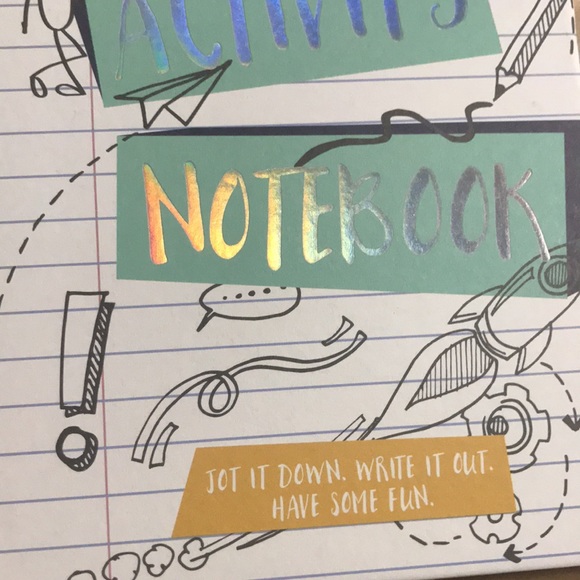 ACTIVITY
NOTEBOOK
JOT IT DOWN. WRITE IT OUT.
HAVE SOME FUN.